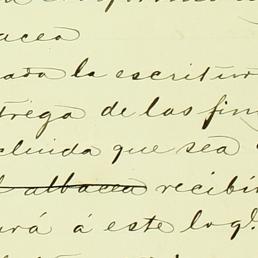 acea
ada la escritur
trega de las fin
cluida que sea
l albacea recibi
ará á este log.